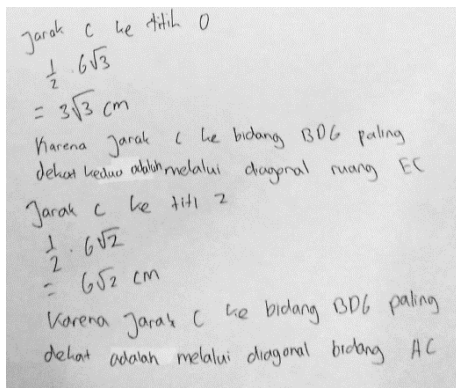 Jarak C ke titik O
1/2 . 6√3
= 3√3 cm
Karena Jarak C ke bidang BDG paling
dekat kedua adalah melalui diagonal ruang EC
Jarak C ke titi 2
1/2 . 6√2
= 6√2 cm
Karena Jarak C ke bidang BDG paling
dekat adalah melalui diagonal bidang AC